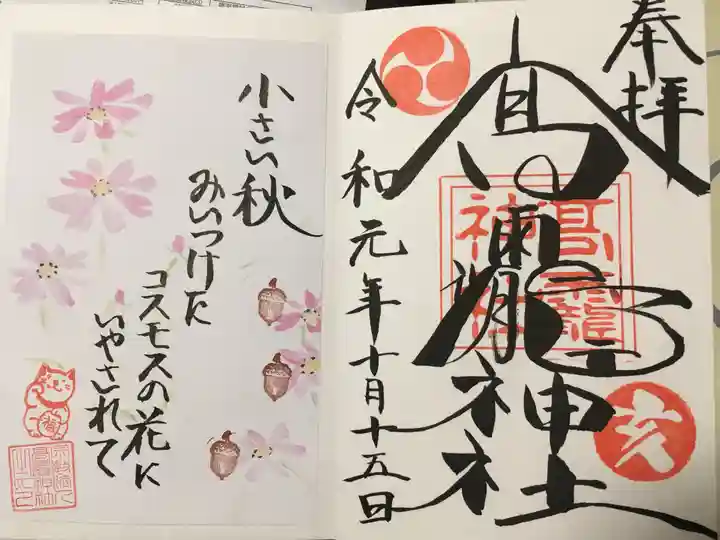 奉拝
高龗神社
高龗神社
亥
令和元年十月十五日
小さい秋
みいつけた
コスモスの花に
いやされて